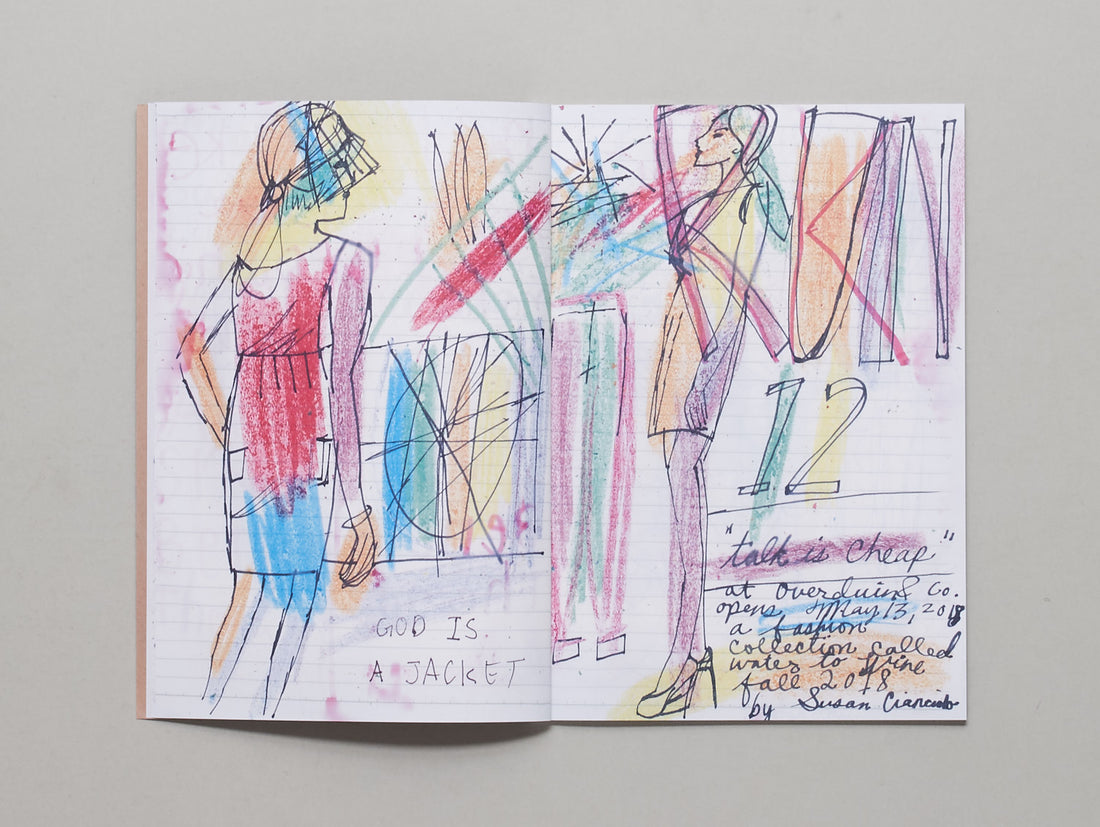 GOD IS
A JACKET
RUN
12
"talk is cheap"
at overduin & Co.
opens May 13, 2018
a fashion
collection called
water to wine
fall 2018
by Susan Cianciolo